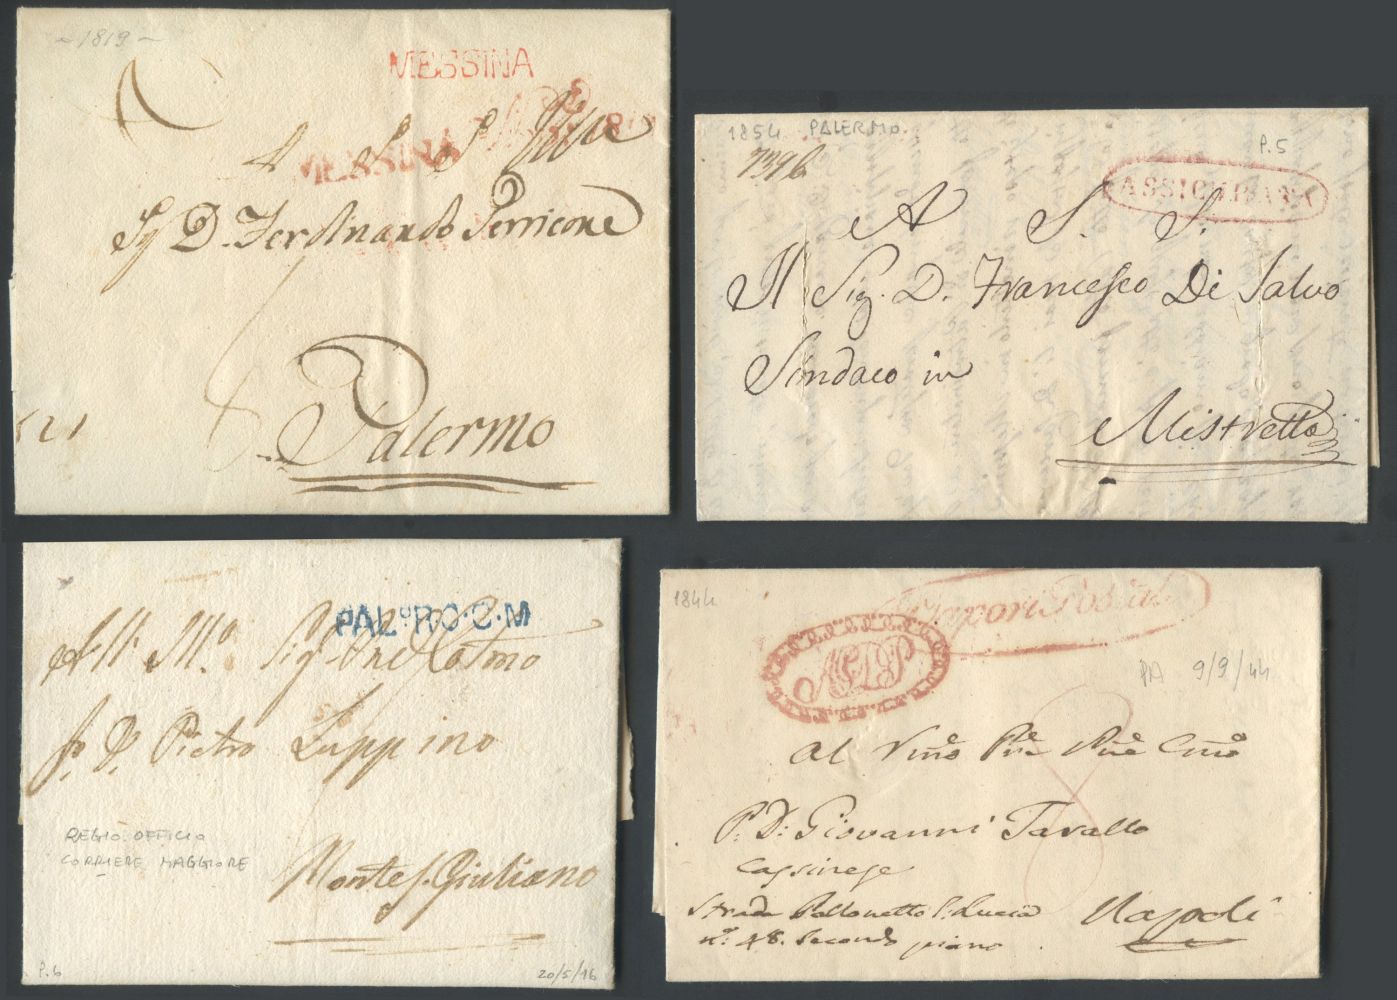 ~1819~
MESSINA
MESSINA
A S. S.
Sig D. Ferdinando Perricone
Palermo
1854. PALERMO.
P.5
7396
ASSICURATA
A S. S.
Il Sig. D. Francesco Di Salvo
Sindaco in
Mistretta
PALº R.O.C.M
P. D. Pietro Luppino
REGIO OFFICIO
CORRIERE MAGGIORE
Monte S. Giuliano
P.6
20/5/16
1844
Vapori Postali
AGDP
PA 9/9/44
8
Al
P. D: Giovanni Tavallo
Cassinese
Strada Pallonetto S. Lucia
nº. 48. Secondo piano
Napoli